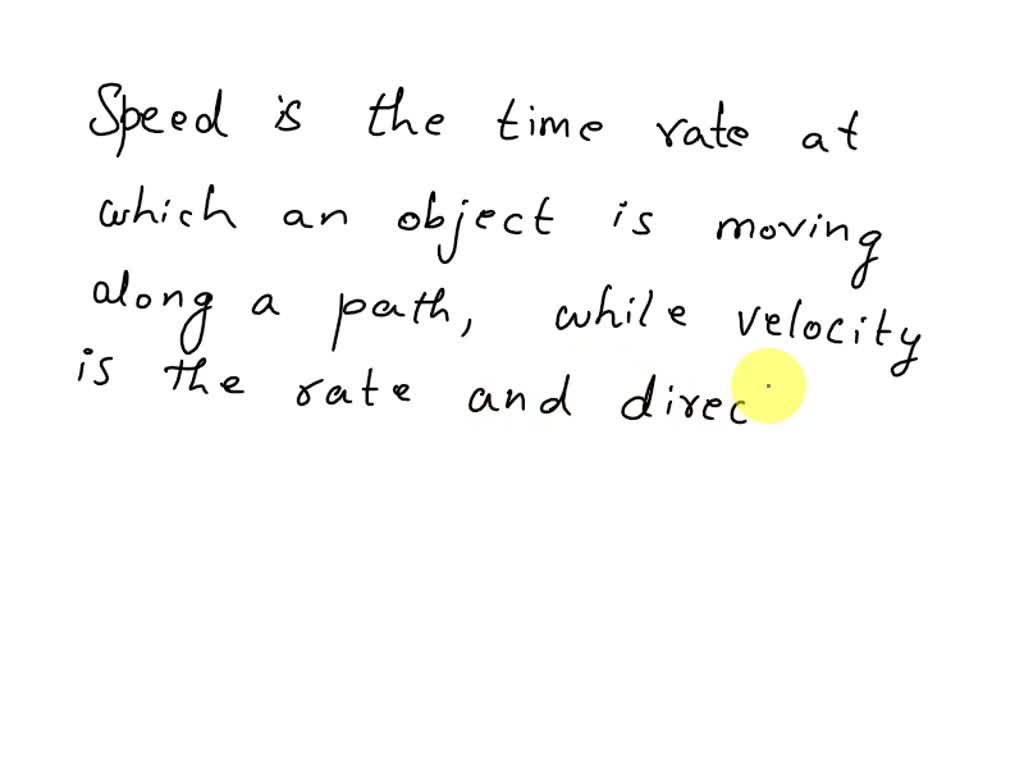 Speed is the time rate at
which an object is moving
along a path, while velocity
is the rate and direc